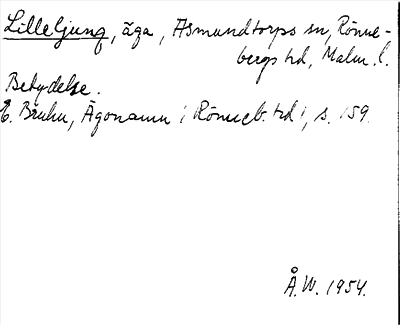 Lilleljung, äga, Asmundtorps sn, Rönne-
bergs hd, Malm. l.
Betydelse.
E. Bruhn, Ägonamn i Rönneb. hd 1, s. 159.
Å.W. 1954.